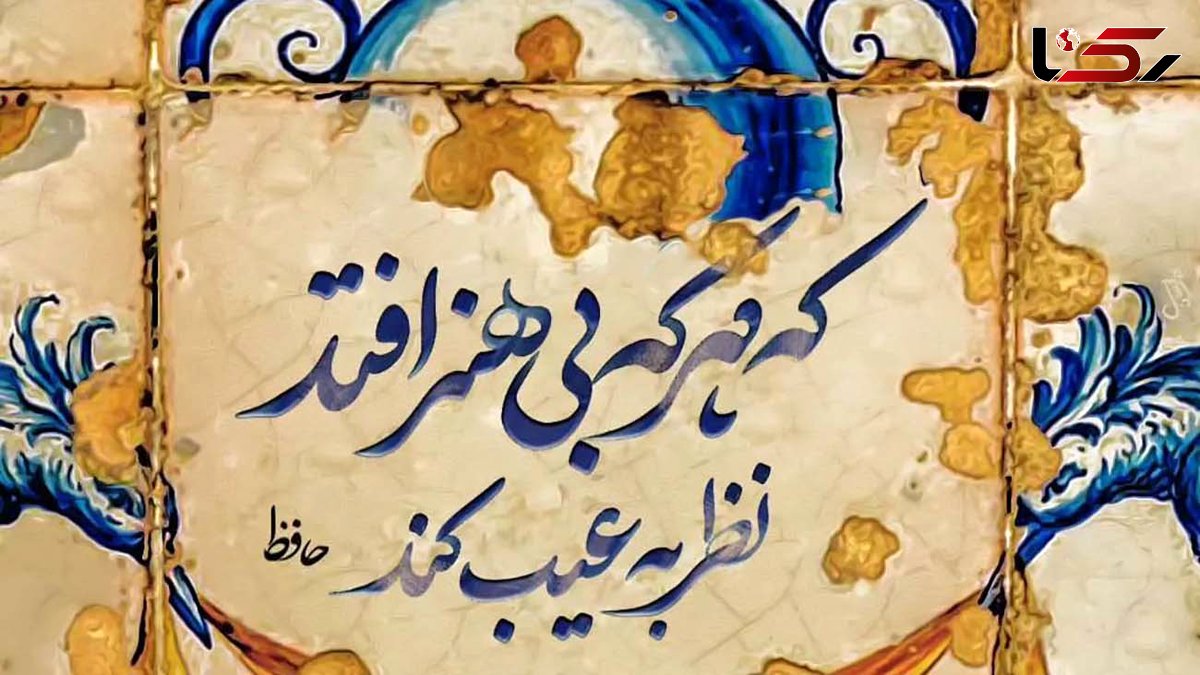 رکنا
که هر که بی هنر افتد
نظر به عیب کند
حافظ